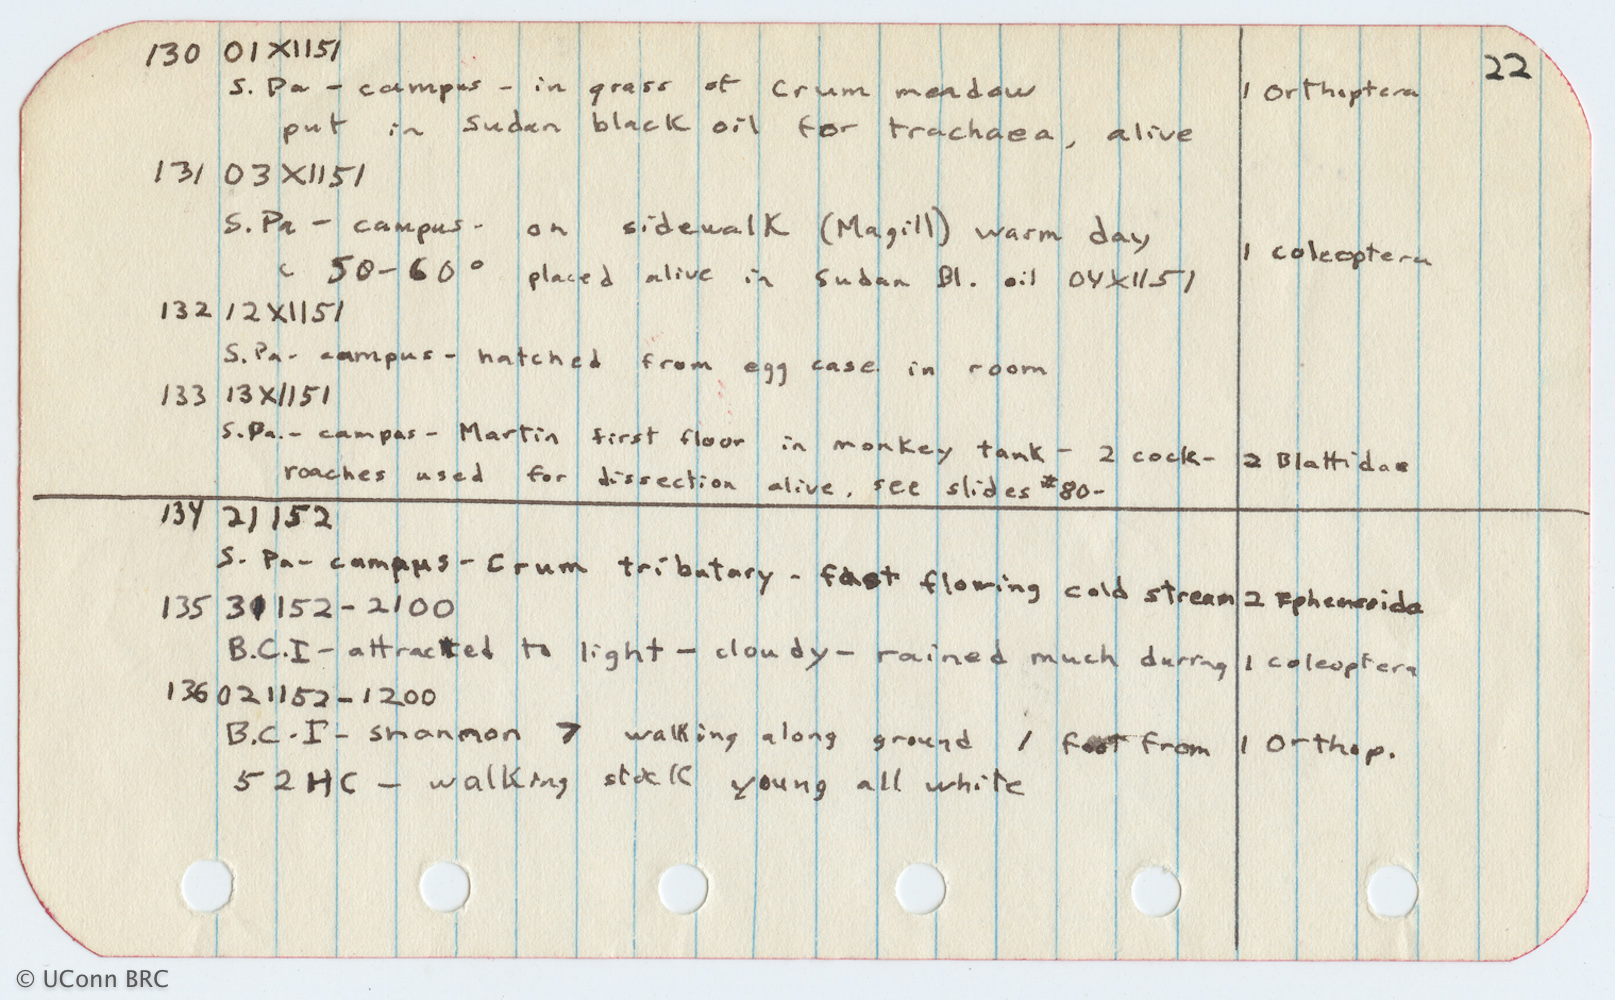 22
130 01XII51
S. Pa - campus - in grass of Crum meadow 1 Orthoptera
put in Sudan black oil for trachaea, alive
131 03XII51
S. Pa - campus - on sidewalk (Magill) warm day
c 50-60° placed alive in Sudan Bl. oil 04XII51 1 coleoptera
132 12XII51
S. Pa - campus - hatched from egg case in room
133 13XII51
S. Pa. - campus - Martin first floor in monkey tank - 2 cock- 2 Blattidae
roaches used for dissection alive. see slides #80-
134 21 I 52
S. Pa - campus - Crum tributary - fast flowing cold stream 2
135 31 I 52 - 2100
B.C.I - attracted to light - cloudy - rained much during 1 coleoptera
136 02II52 - 1200
B.C.I - shannon 7 walking along ground 1 foot from 1 Orthop.
52HC - walking stick young all white
© UConn BRC